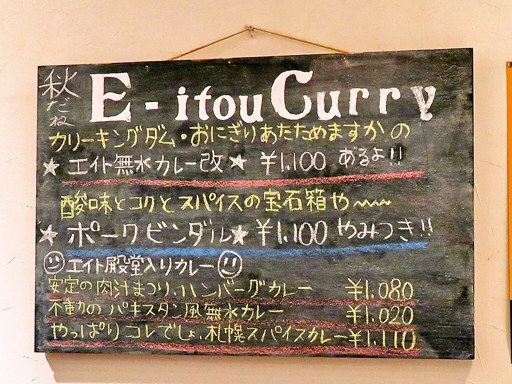 秋だね
E-itou Curry
カリーキングダム・おにぎりあたためますか の
★ エイト無水カレー改 ★ ¥1,100 あるよ!!
酸味とコクとスパイスの宝石箱や〜〜
★ ポークビンダル★ ¥1,100 やみつき!!
エイト殿堂入りカレー
安定の肉汁まつり、ハンバーグカレー ¥1,080
不動の パキスタン風無水カレー ¥1,020
やっぱりコレでしょ、札幌スパイスカレー ¥1,110